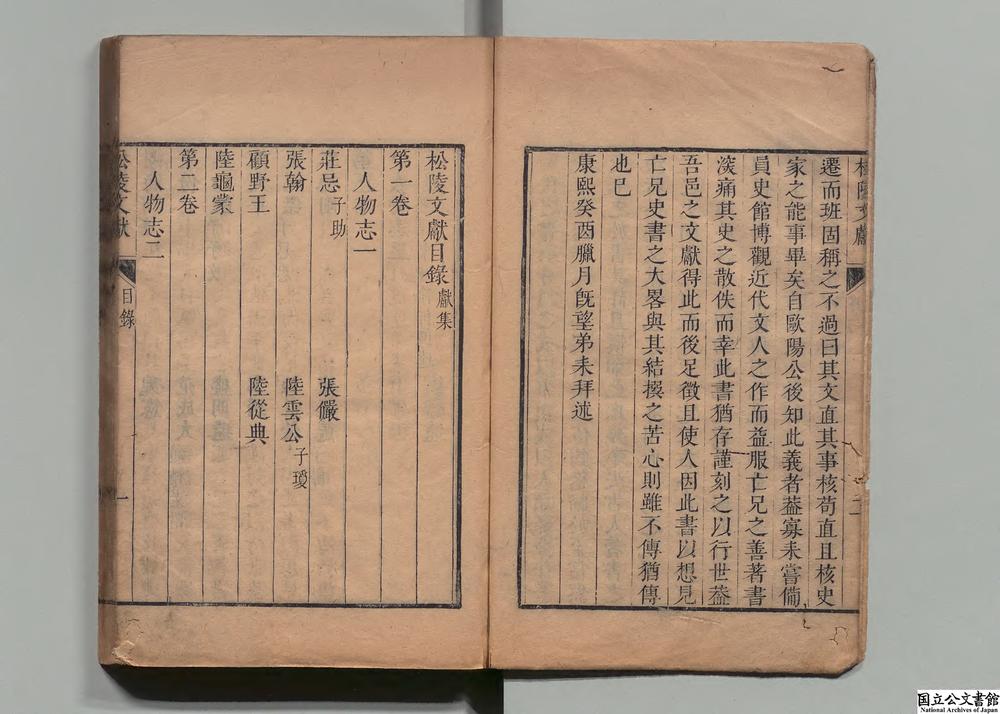 松陵文獻
遷而班固稱之不過曰其文直其事核苟直且核史
家之能事畢矣自歐陽公後知此義者葢寡耒嘗備
員史館博觀近代文人之作而益服亡兄之善著書
深痛其史之散佚而幸此書猶存謹刻之以行世葢
吾邑之文獻得此而後足徵且使人因此書以想見
亡兄史書之大畧與其結撰之苦心則雖不傳猶傳
也巳
康熙癸酉臘月旣望弟耒拜述
二
松陵文獻目錄 獻集
第一卷
人物志一
莊忌 子助 張儼
張翰 陸雲公 子瓊
顧野王 陸從典
陸龜蒙
第二卷
人物志二
松陵文獻 目錄 一
国立公文書館
National Archives of Japan